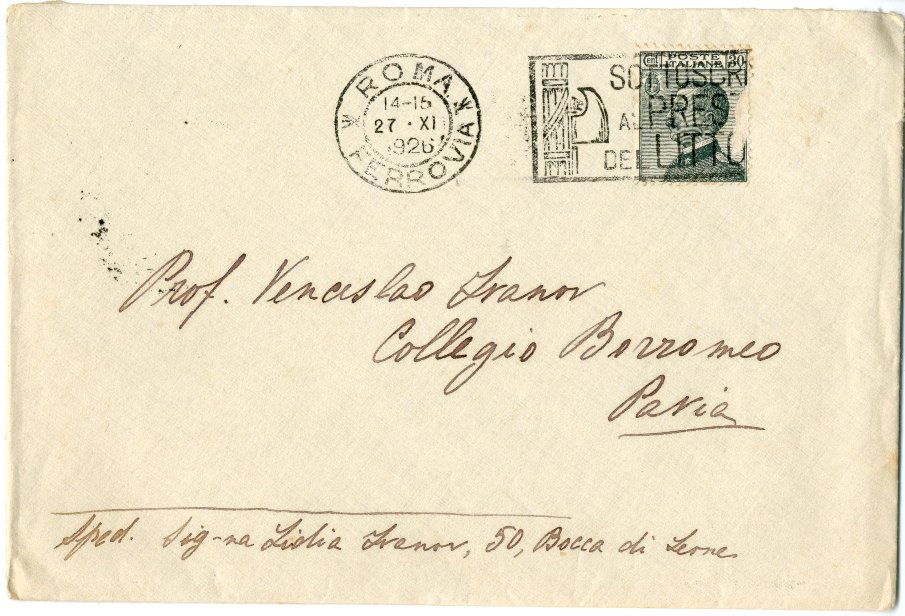 ROMA
14-15
27 · XI
1926
FERROVIA
POSTE
ITALIANE 30
SOTTOSCRI
AL PRES
DEL LITTO
Prof. Venceslao Ivanov
Collegio Borromeo
Pavia
Sped. Sig-na Lidia Ivanov, 50, Bocca di Leone